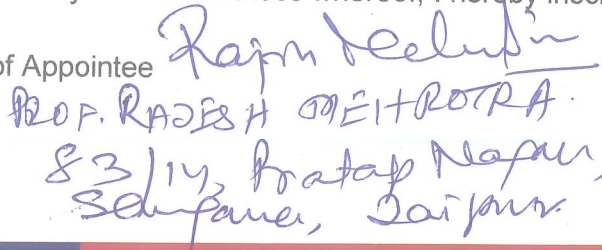 of Appointee Rajesh Mehrotra
PROF. RAJESH MEHROTRA.
83/14, Pratap Nagar,
Sanganer, Jaipur.